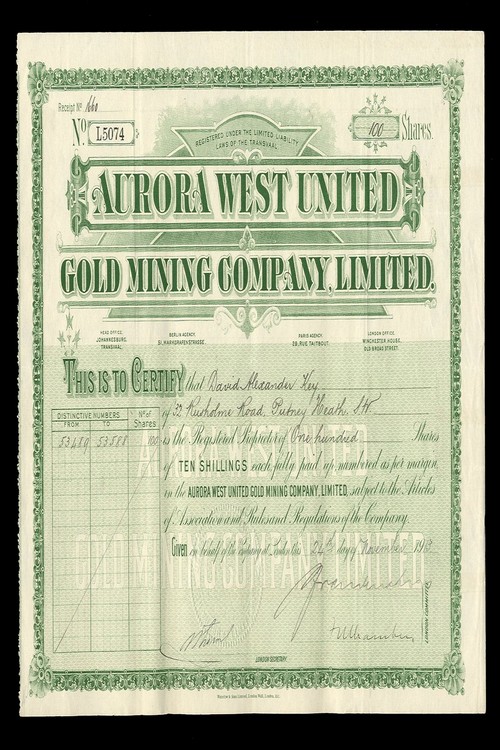 Receipt Nº 660
Nº L5074
100 Shares.
REGISTERED UNDER THE LIMITED LIABILITY
LAWS OF THE TRANSVAAL
AURORA WEST UNITED
GOLD MINING COMPANY, LIMITED.
HEAD OFFICE, JOHANNESBURG, TRANSVAAL.
BERLIN AGENCY, 51, MARKGRAFENSTRASSE.
PARIS AGENCY, 29, RUE TAITBOUT.
LONDON OFFICE, WINCHESTER HOUSE, OLD BROAD STREET.
THIS IS TO CERTIFY that David Alexander Key
of 32 Rusholme Road, Putney Heath, SW.
is the Registered Proprietor of One hundred Shares
of TEN SHILLINGS each, fully paid up, numbered as per margin,
in the AURORA WEST UNITED GOLD MINING COMPANY, LIMITED, subject to the Articles
of Association and Rules and Regulations of the Company.
Given on behalf of the Company at London this 24th day of November 191
DISTINCTIVE NUMBERS
FROM TO
Nº of Shares
53489 53588 100
AURORA WEST UNITED
GOLD MINING COMPANY LIMITED
LONDON COMMITTEE
LONDON SECRETARY.